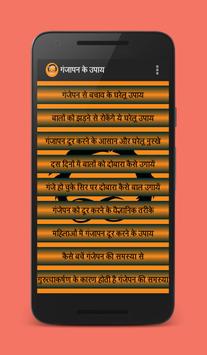 गंजापन के उपाय
गंजेपन से बचाव के घरेलू उपाय
बालों को झड़ने से रोकेंगे ये घरेलू उपाय
गंजापन दूर करने के आसान और घरेलू नुस्खे
दस दिनों में बालों को दोबारा कैसे उगायें
गंजे हो चुके सिर पर दोबारा कैसे बाल उगायें
गंजेपन को दूर करने के वैज्ञानिक तरीके
महिलाओं मे गंजापन दूर करने के उपाय
कैसे बचे गंजेपन की समस्या से
गुरुत्वाकर्षण के कारण होती है गंजेपन की समस्या